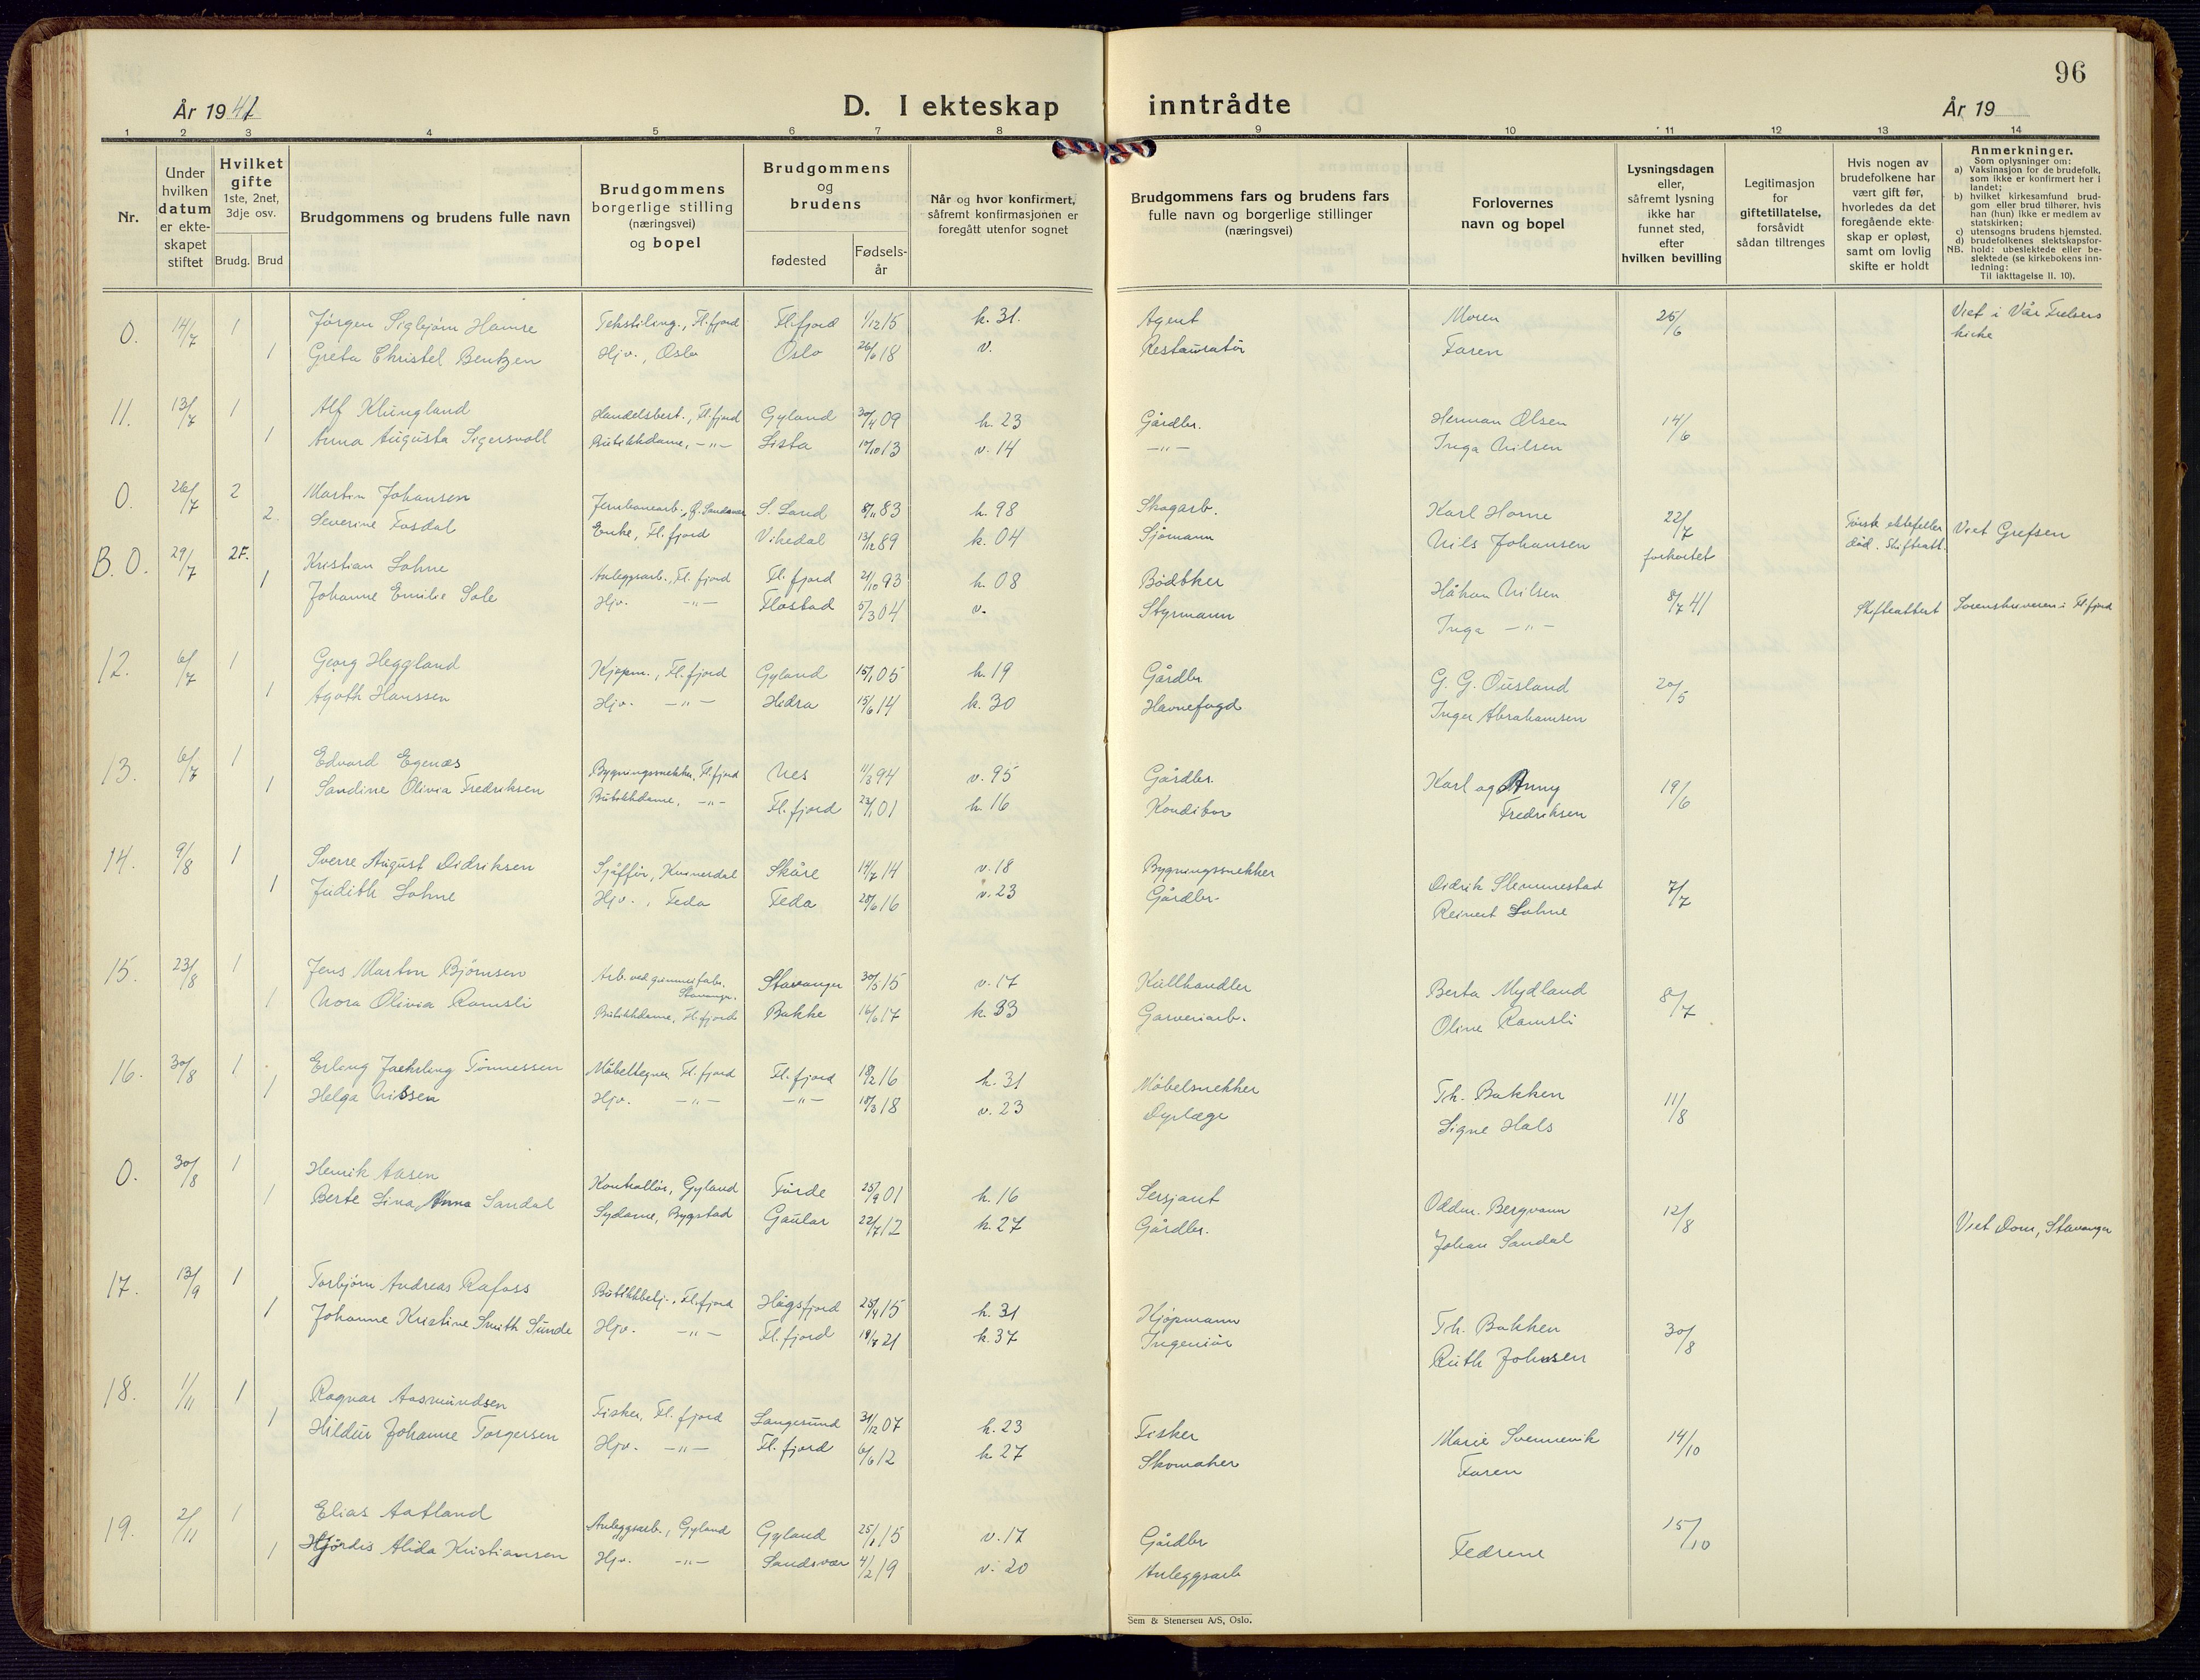 96
År 1941
D. I ekteskap inntrådte
År 19
1 2 3 4 5 6 7 8 9 10 11 12 13 14
Nr.
Under hvilken datum er ekteskapet stiftet
Hvilket gifte 1ste, 2net, 3dje osv.
Brudg. Brud
Brudgommens og brudens fulle navn
Brudgommens borgerlige stilling (næringsvei) og bopel
Brudgommens og brudens
fødested
Fødselsår
Når og hvor konfirmert, såfremt konfirmasjonen er foregått utenfor sognet
Brudgommens fars og brudens fars fulle navn og borgerlige stillinger (næringsvei)
Forlovernes navn og bopel
Lysningsdagen eller, såfremt lysning ikke har funnet sted, efter hvilken bevilling
Legitimasjon for giftetillatelse, forsåvidt sådan tiltrenges
Hvis nogen av brudefolkene har vært gift før, hvorledes da det foregående ekteskap er opløst, samt om lovlig skifte er holdt
Anmerkninger.
Som oplysninger om:
a) Vaksinasjon for de brudefolk, som ikke er konfirmert her i landet;
b) hvilket kirkesamfund brudgom eller brud tilhører, hvis han (hun) ikke er medlem av statskirken;
c) utensogns brudens hjemsted.
d) brudefolkenes slektskapsforhold: ubeslektede eller beslektede (se kirkebokens innledning:
NB. Til iakttagelse II. 10).
O. 14/7 1 Jørgen Sigbjørn Hamre Tekstiling., Fl.fjord Fl.fjord 1/12 15 k. 31. Agent Moren 25/6 Viet i Vår Frelsers kirke
1 Greta Christel Bentzen Hjv., Oslo Oslo 26/6 18 v. Restauratør Faren
11. 13/7 1 Alf Klungland Handelsbest., Fl.fjord Gyland 30/4 09 k. 23 Gårdbr. Herman Olsen 14/6
1 Anna Augusta Sigersvoll Butikkdame, -"- Lista 17/10 13 v. 14 -"- Inga Nilsen
O. 26/7 2 Martin Johansen S. Land 8/11 83 k. 98 Skogarb. Karl Horne 22/7 Første ektefeller Viet Grefsen
2. Severine Fosdal Enke, Fl.fjord Vikedal 13/12 89 k. 04 Sjømann Nils Johansen forkortet død. Skifteatt.
B. O. 29/7 2F. Kristian Lohne Anleggsarb., Fl.fjord Fl.fjord 21/10 93 k. 08 Bødtker Håkon Nilsen 8/7 41 Skifteattest Sorenskriveren i Fl.fjord
1 Johanne Emilie Sole Hjv. -"- Flostad 5/3 04 v. Styrmann Inga -"-
12. 6/7 1 Georg Heggland Kjøpm., Fl.fjord Gyland 15/1 05 k. 19 Gårdbr. G. G. Ousland 20/5
1 Agoth Hanssen Hjv. -"- Hidra 15/6 14 k. 30 Havnefogd Inger Abrahamsen
13. 6/7 1 Edvard Egenæs Bygningssnekker, Fl.fjord Nes 11/3 94 v. 95 Gårdbr. Karl og Anny 19/6
1 Sandine Olivia Fredriksen Butikkdame, -"- Fl.fjord 23/1 01 k. 16 Konditor Fredriksen
14. 9/8 1 Sverre August Didriksen Sjåffør, Kvinesdal Skåre 14/7 14 v. 18 Bygningssnekker Didrik Slemmestad 7/7
1 Judith Lohne Hjv., Feda Feda 28/6 16 v. 23 Gårdbr. Reinert Lohne
15. 23/8 1 Jens Martin Bjørnsen Arb. ved gummifabr. Stavanger. Stavanger 30/5 15 v. 17 Kullhandler Berta Mydland 8/7
1 Nora Olivia Ramsli Butikkdame, Fl.fjord Bakke 16/6 17 k. 33 Garveriarb. Oline Ramsli
16. 30/8 1 Erling Jachsling Tønnessen Møbeltegner, Fl.fjord Fl.fjord 18/2 16 k. 31 Møbelsnekker Th. Bakken 11/8
1 Helga Nissen Hjv. -"- -"- 18/3 18 v. 23 Dyrlæge Signe Hals
O. 30/8 1 Henrik Aasen Kontrollør, Gyland Førde 25/9 01 k. 16 Sersjant Oddm. Bergvann 12/8 Viet Dom, Stavanger
1 Berte Lina Anna Sandal Sydame, Bygstad Gaular 22/7 12 k. 27 Gårdbr. Johan Sandal
17. 13/9 1 Torbjørn Andreas Rafoss Butikkbetj., Fl.fjord Høgsfjord 25/4 15 k. 31 Kjøpmann Th. Bakken 30/8
1 Johanne Kristine Smith Sunde Hjv. -"- Fl.fjord 18/7 21 k. 37 Ingeniør Ruth Johnsen
18. 1/11 1 Ragnar Aasmundsen Fisker, Fl.fjord Langesund 31/12 07 k. 23 Fisker Marie Svennevik 14/10
1 Hildur Johanne Torgersen Hjv. -"- Fl.fjord 6/6 12 k. 27 Skomaker Faren
19. 2/11 1 Elias Aatland Anleggsarb., Gyland Gyland 25/1 15 v. 17 Gårdbr Fedrene 15/10
1 Hjørdis Alida Kristiansen Hjv. -"- Sandsvær 4/2 19 v. 20 Anleggsarb
Sem & Stenersen A/S, Oslo.